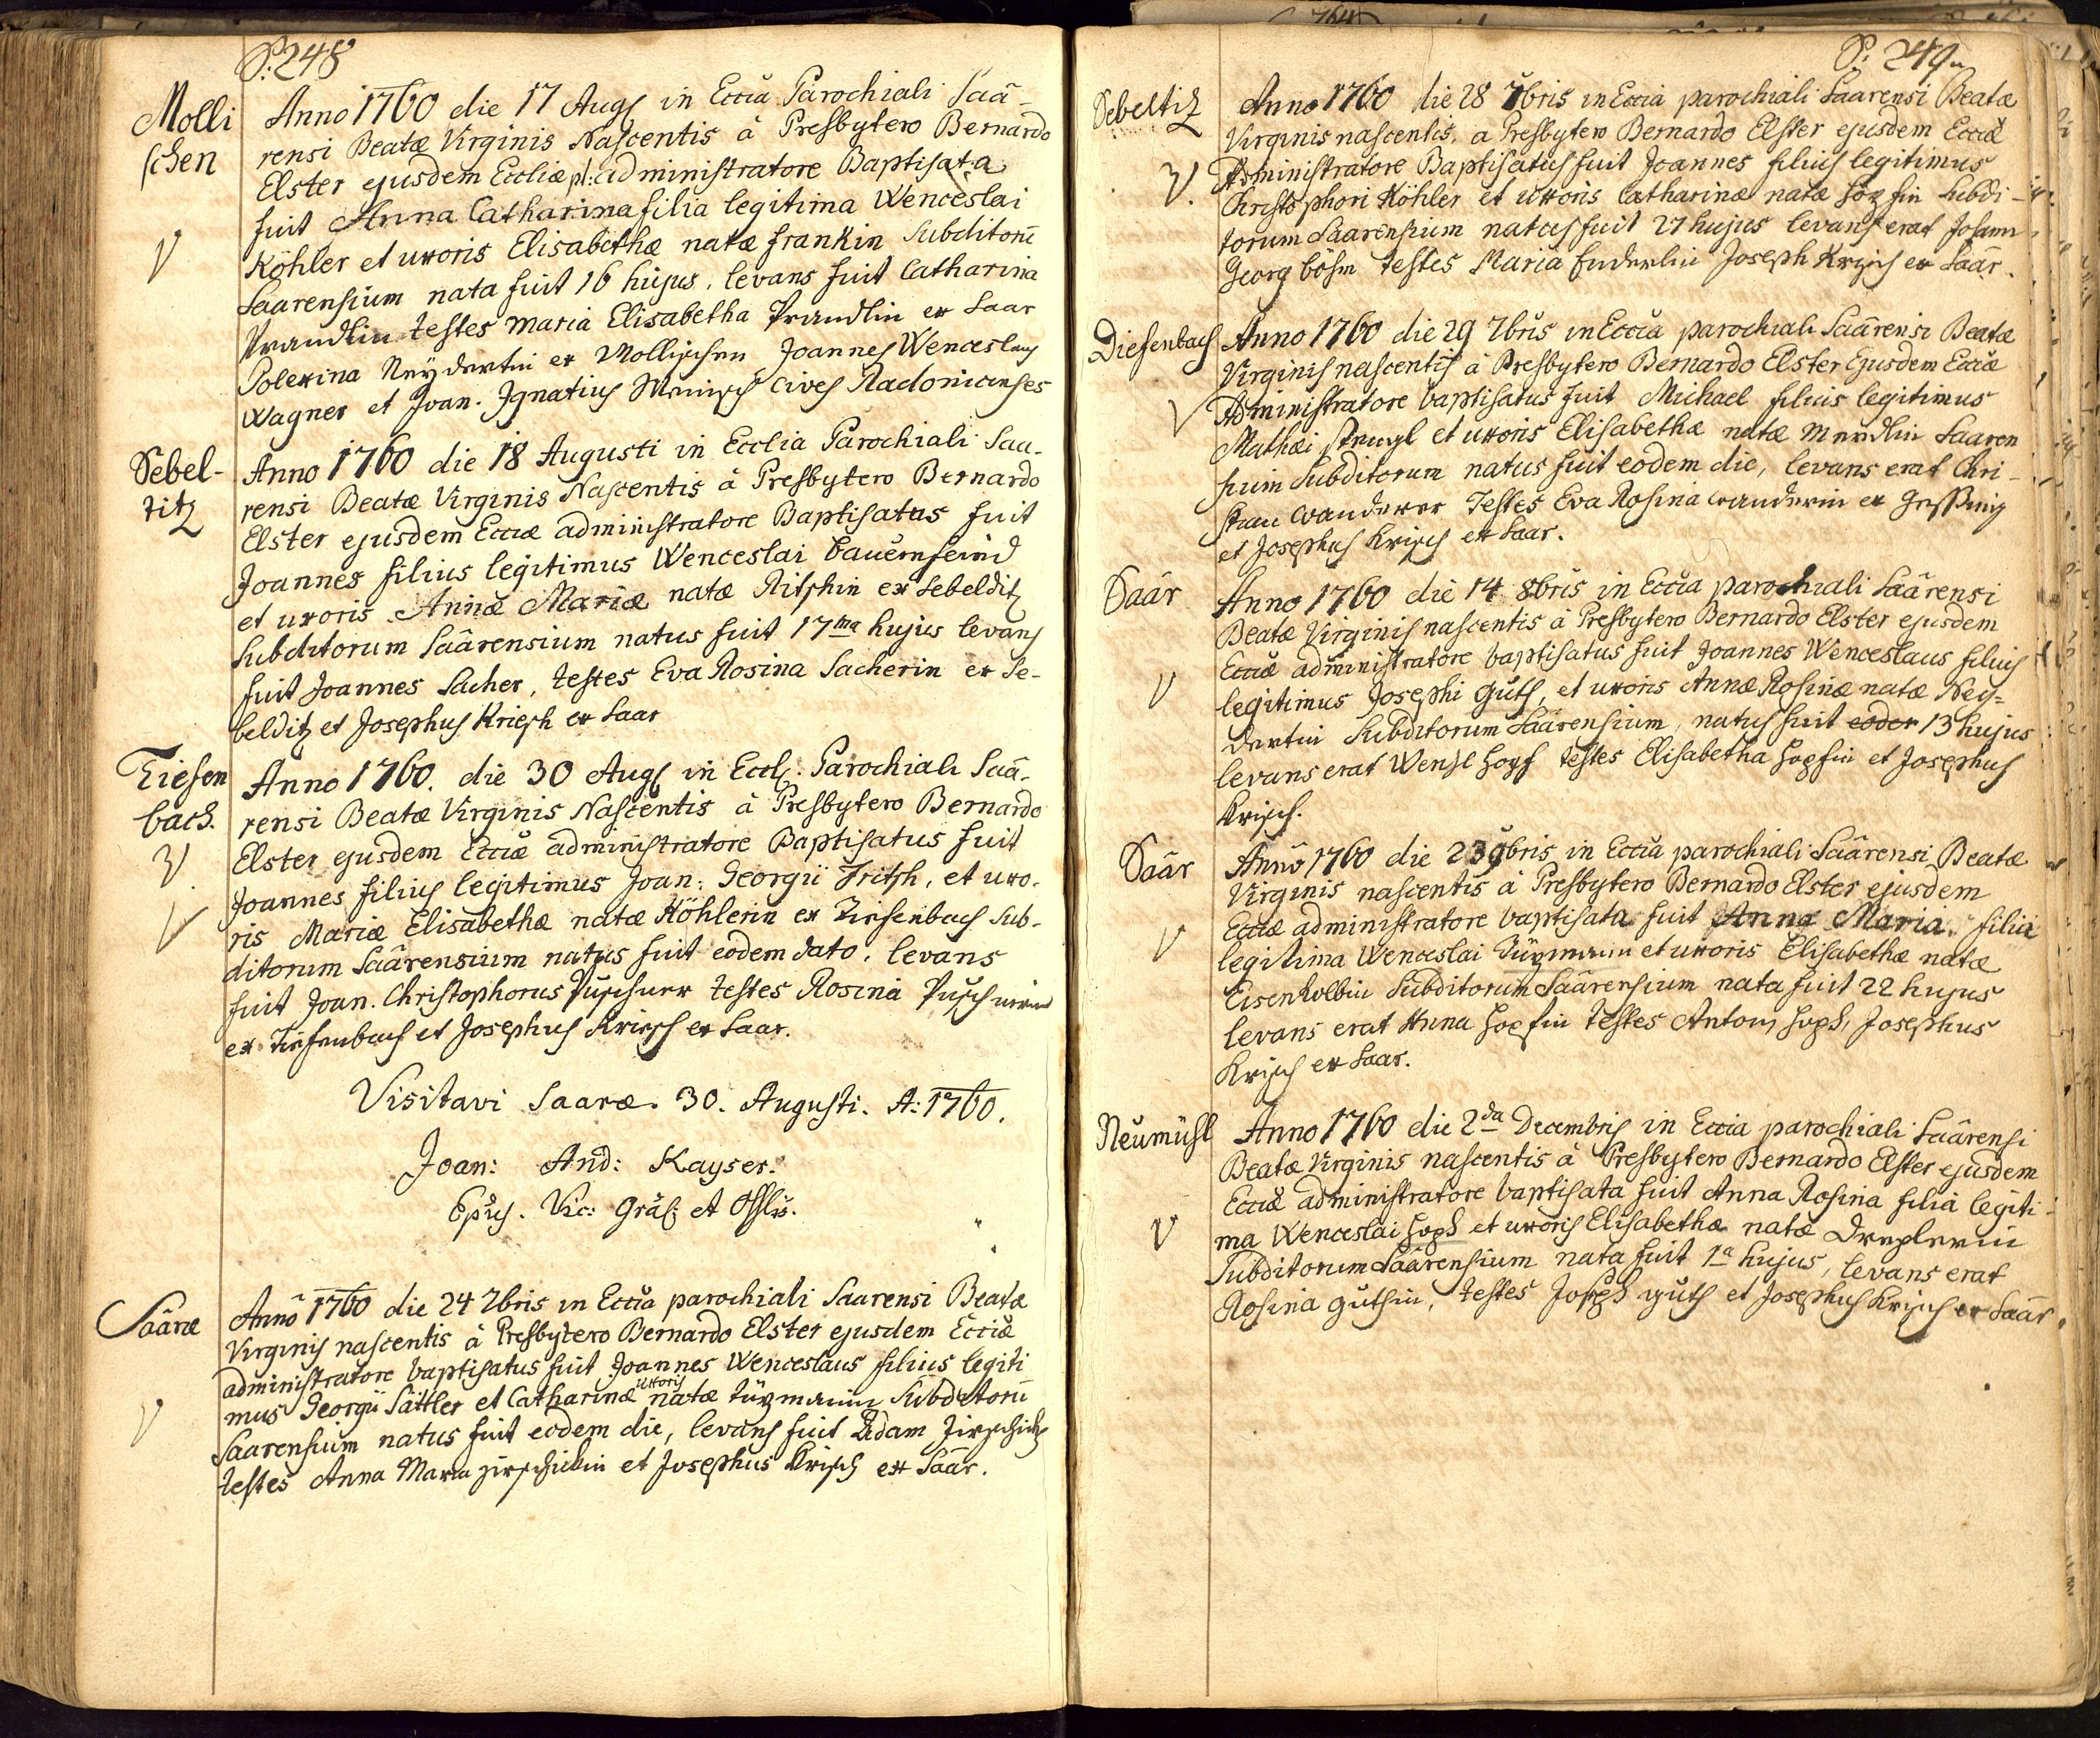 P: 248
Molli
schen
Anno 1760 die 17 Augs in Eccia Parochiali Saä-
rensi Beatæ Virginis Nascentis à Presbytero Bernardo
Elster ejusdem Eccliæ pl: administratore Baptisata
fuit Anna Catharina filia legitima Wenceslai
Köhler et uxoris Elisabethæ natæ Frankin Subditorū
V
Saarensium nata fuit 16 hujus, levans fuit Catharina
testes Maria Elisabetha ex Saar
Polexina Neydertin ex Mollischen Joannes Wenceslaus
Wagner et Joan. Ignatius cives Radonicenses
Sebel-
titz
Anno 1760 die 18 Augusti in Ecclia Parochiali Saa-
rensi Beatæ Virginis Nascentis à Presbytero Bernardo
Elster ejusdem Ecciæ administratore Baptisatus fuit
Joannes filius legitimus Wenceslai Bauernfeind
et uxoris Annæ Mariæ natæ Ritschin ex Sebelditz
Subditorum Saärensium natus fuit 17ma hujus levans
fuit Joannes Sacher, testes Eva Rosina Sacherin ex Se-
belditz et Josephus Kriesch ex Saar
Tiefen
bach.
Anno 1760. die 30 Augs in Eccls. Parochiali Saä-
rensi Beatæ Virginis Nascentis à Presbytero Bernardo
Elster ejusdem Ecciæ administratore Baptisatus fuit
V
Joannes filius legitimus Joan: Georgii Fritsch, et uxo-
V
ris Mariæ Elisabethæ natæ Köhlerin ex Tiefenbach Sub-
ditorum Saärensium natus fuit eodem dato, levans
fuit Joan. Christophorus Puschner testes Rosina Puschnerin
ex Tiefenbach et Josephus Kriesch ex Saar.
Visitavi Saaræ. 30. Augusti. A: 1760.
Joan: And: Kayser.
Epus. Vic: Gräl: et Offlis.
Saäræ
Anno 1760 die 24 7bris in Eccia parochiali Saarensi Beatæ
Virginis nascentis à Presbytero Bernardo Elster ejusdem Ecciæ
administratore baptisatus fuit Joannes Wenceslaus filius legiti
uxoris
mus Georgii Sattler et Catharinæ natæ Subditorū
V
Saarensium natus fuit eodem die, levans fuit Adam
testes Anna Maria et Josephus Krisch ex Saär.
P: 249
Sebeltitz
Anno 1760 die 28 7bris in Eccia parochiali Saarensi Beatæ
Virginis nascentis, a Presbytero Bernardo Elster ejusdem Ecciæ
V.
Administratore Baptisatus fuit Joannes filius legitimus
Christophori Köhler et uxoris Catharinæ natæ Hopfin Subdi-
torum Saarensium natus fuit 27 hujus levans erat Johann
Georg Böhm testes Maria Enderlin Joseph Krisch ex Saär.
Diefenbach
Anno 1760 die 29 7bris in Eccia parochiali Saärensi Beatæ
Virginis nascentis à Presbytero Bernardo Elster Ejusdem Ecciæ
V
Administratore baptisatus fuit Michael filius legitimus
Mathæi Stengl et uxoris Elisabethæ natæ Saaren
sium Subditorum natus fuit eodem die, levans erat Chri-
stian Wanderer Testes Eva Rosina Wanderin ex
et Josephus Krisch ex Saar.
Saär
Anno 1760 die 14 8bris in Eccia parochiali Saärensi
Beatæ Virginis nascentis à Presbytero Bernardo Elster ejusdem
Ecciæ administratore baptisatus fuit Joannes Wenceslaus filius
V
legitimus Josephi Guth, et uxoris Annæ Rosinæ natæ Ney=
dertin Subditorum Saärensium, natus fuit eoder 13 hujus
levans erat Wenzl Hopf testes Elisabetha Hopfin et Josephus
Krisch.
Saär
Anno 1760 die 23 9bris in Eccia parochiali Saärensi Beatæ
Virginis nascentis à Presbytero Bernardo Elster ejusdem
Ecciæ administratore baptisata fuit Anna Maria filia
V
legitima Wenceslai et uxoris Elisabethæ natæ
Eisenkolbin Subditorum Saärensium nata fuit 22 hujus
levans erat Anna Hopfin testes Antony Hoph, Josephus
Krisch ex Saar.
Neumühl
Anno 1760 die 2da Decembris in Eccia parochiali Saärensi
Beatæ Virginis nascentis à Presbytero Bernardo Elster ejusdem
Ecciæ administratore baptisata fuit Anna Rosina filia legiti-
V
ma Wenceslai Hoph et uxoris Elisabethæ natæ Drexlerin
Subditorum Saärensium nata fuit 1a hujus, levans erat
Rosina Guthin, testes Joseph Guth et Josephus Krisch ex Saär.